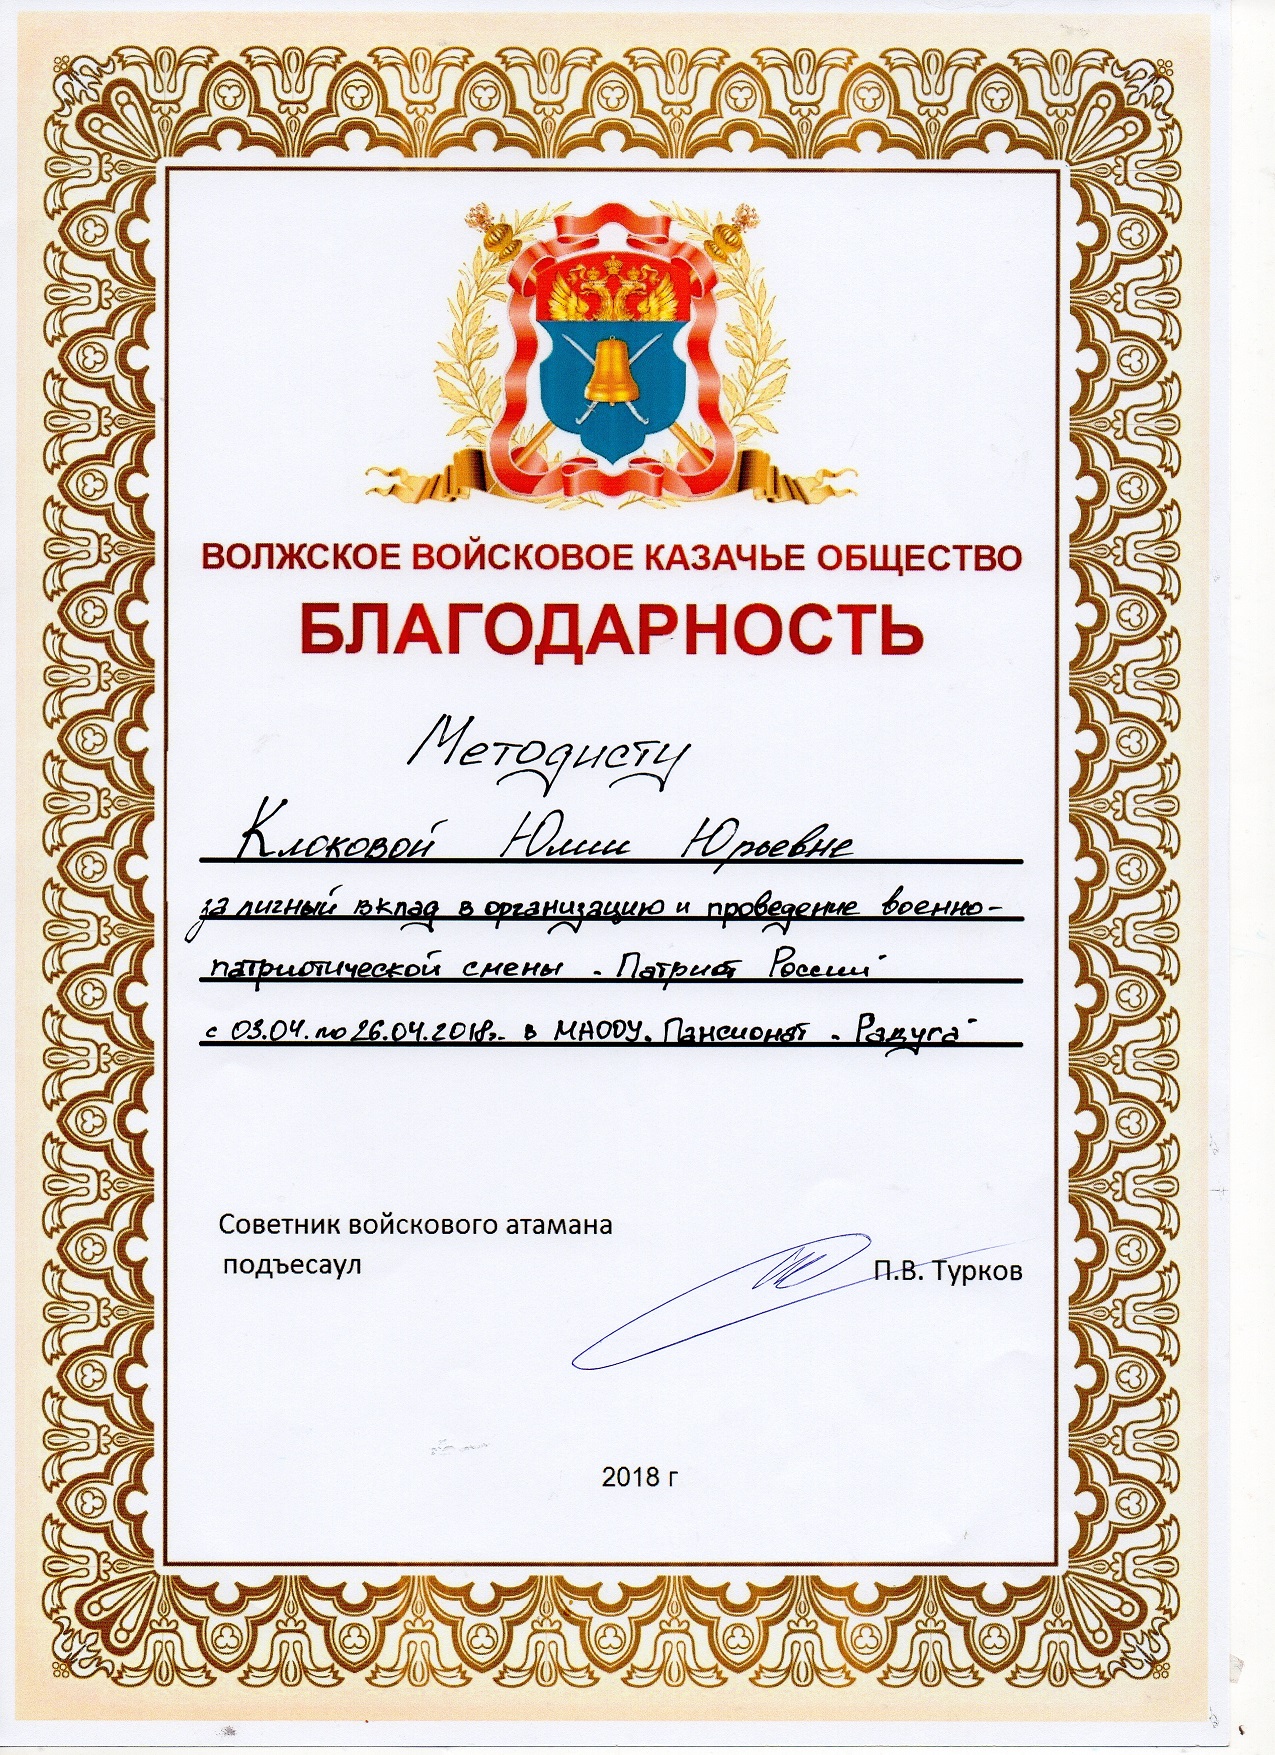 ВОЛЖСКОЕ ВОЙСКОВОЕ КАЗАЧЬЕ ОБЩЕСТВО
БЛАГОДАРНОСТЬ
Методисту
Клоковой Юлии Юрьевне
за личный вклад в организацию и проведение военно-
патриотической смены "Патриот России"
с 03.04. по 26.04.2018г. в МАООУ "Пансионат "Радуга"
Советник войскового атамана
подъесаул
П.В. Турков
2018 г